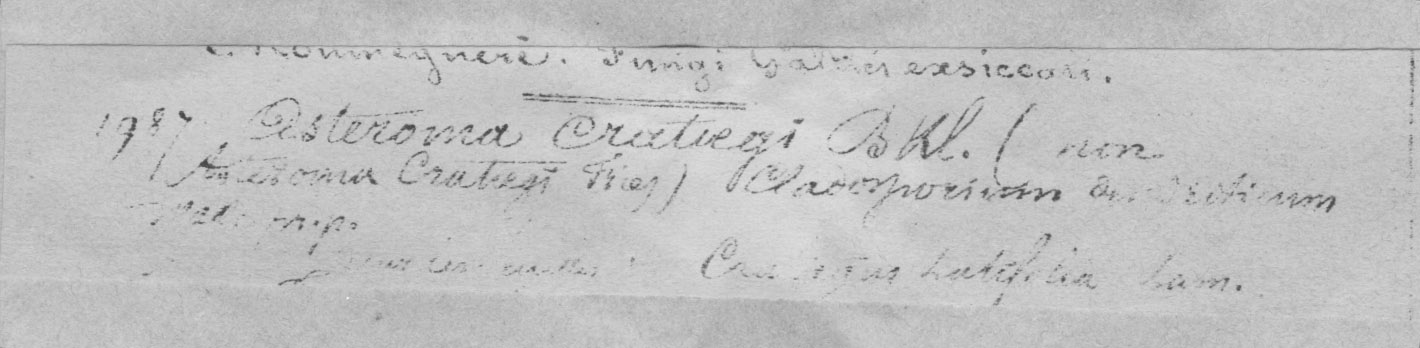 C. Roumeguère. Fungi Gallici exsiccati.
1987. Asteroma Crataegi BKl. (non
Asteroma Crataegi Fries) Cladosporium dendriticum
pr.p.
Crataegus latifolia Lam.